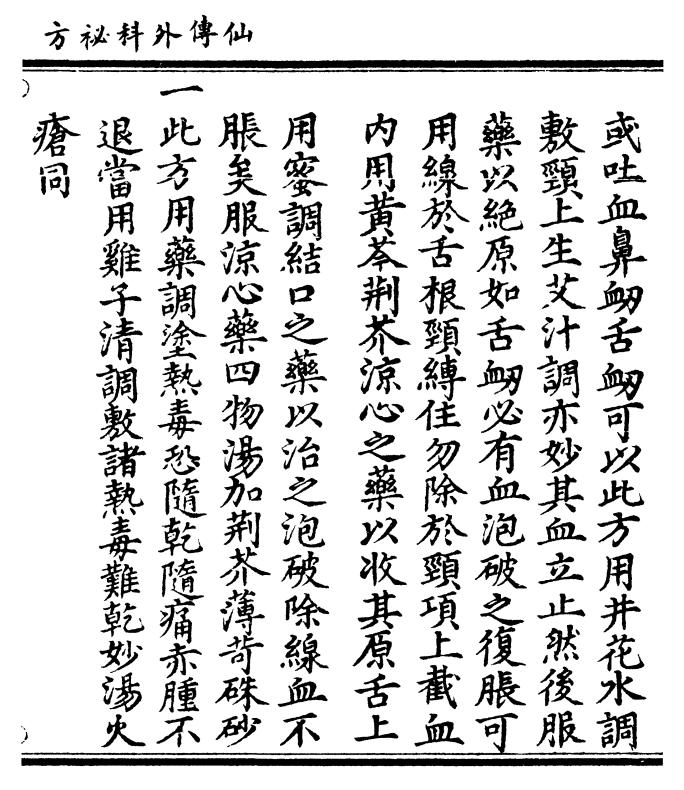 仙傳外科祕方
或吐血鼻衂舌衂可以此方用井花水調
敷頸上生艾汁調亦妙其血立止然後服
藥以絶原如舌衂必有血泡破之復脹可
用線於舌根頸縛住勿除於頸項上截血
內用黃芩荆芥涼心之藥以收其原舌上
用蜜調結口之藥以治之泡破除線血不
脹矣服涼心藥四物湯加荆芥薄苛硃砂
一此方用藥調塗熱毒恐隨乾隨痛赤腫不
退當用雞子清調敷諸熱毒難乾妙湯火
瘡同